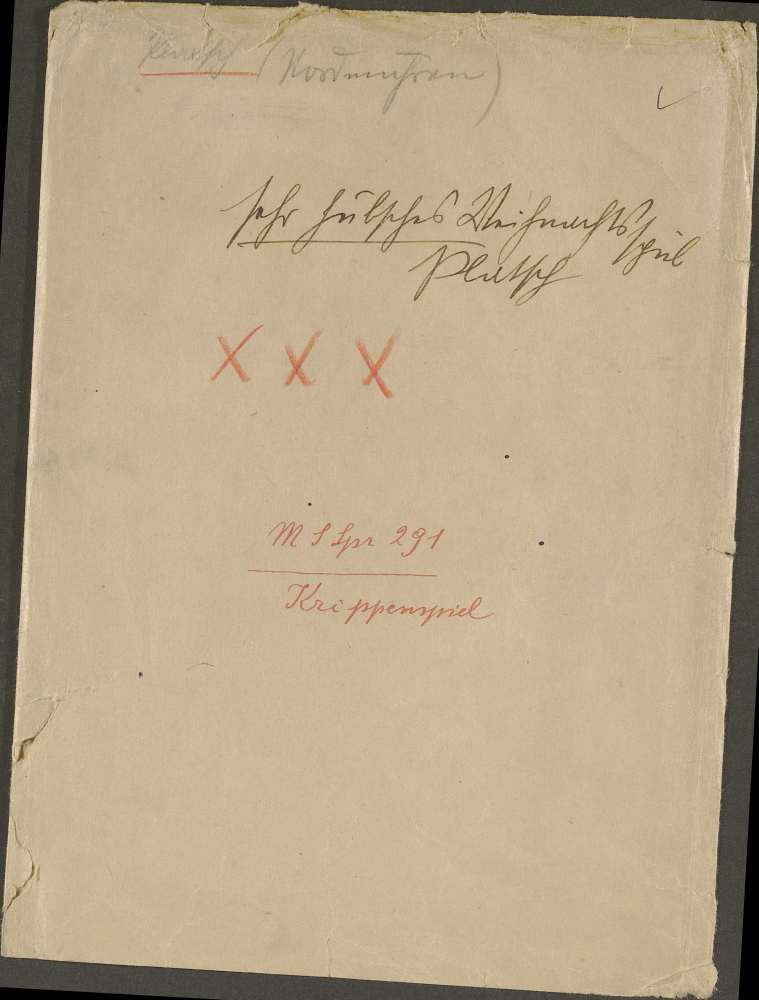 (Nordmähren)
sehr hübsches Weihnachtsspiel
Platsch
X X X
M S Spr 291
Krippenspiel